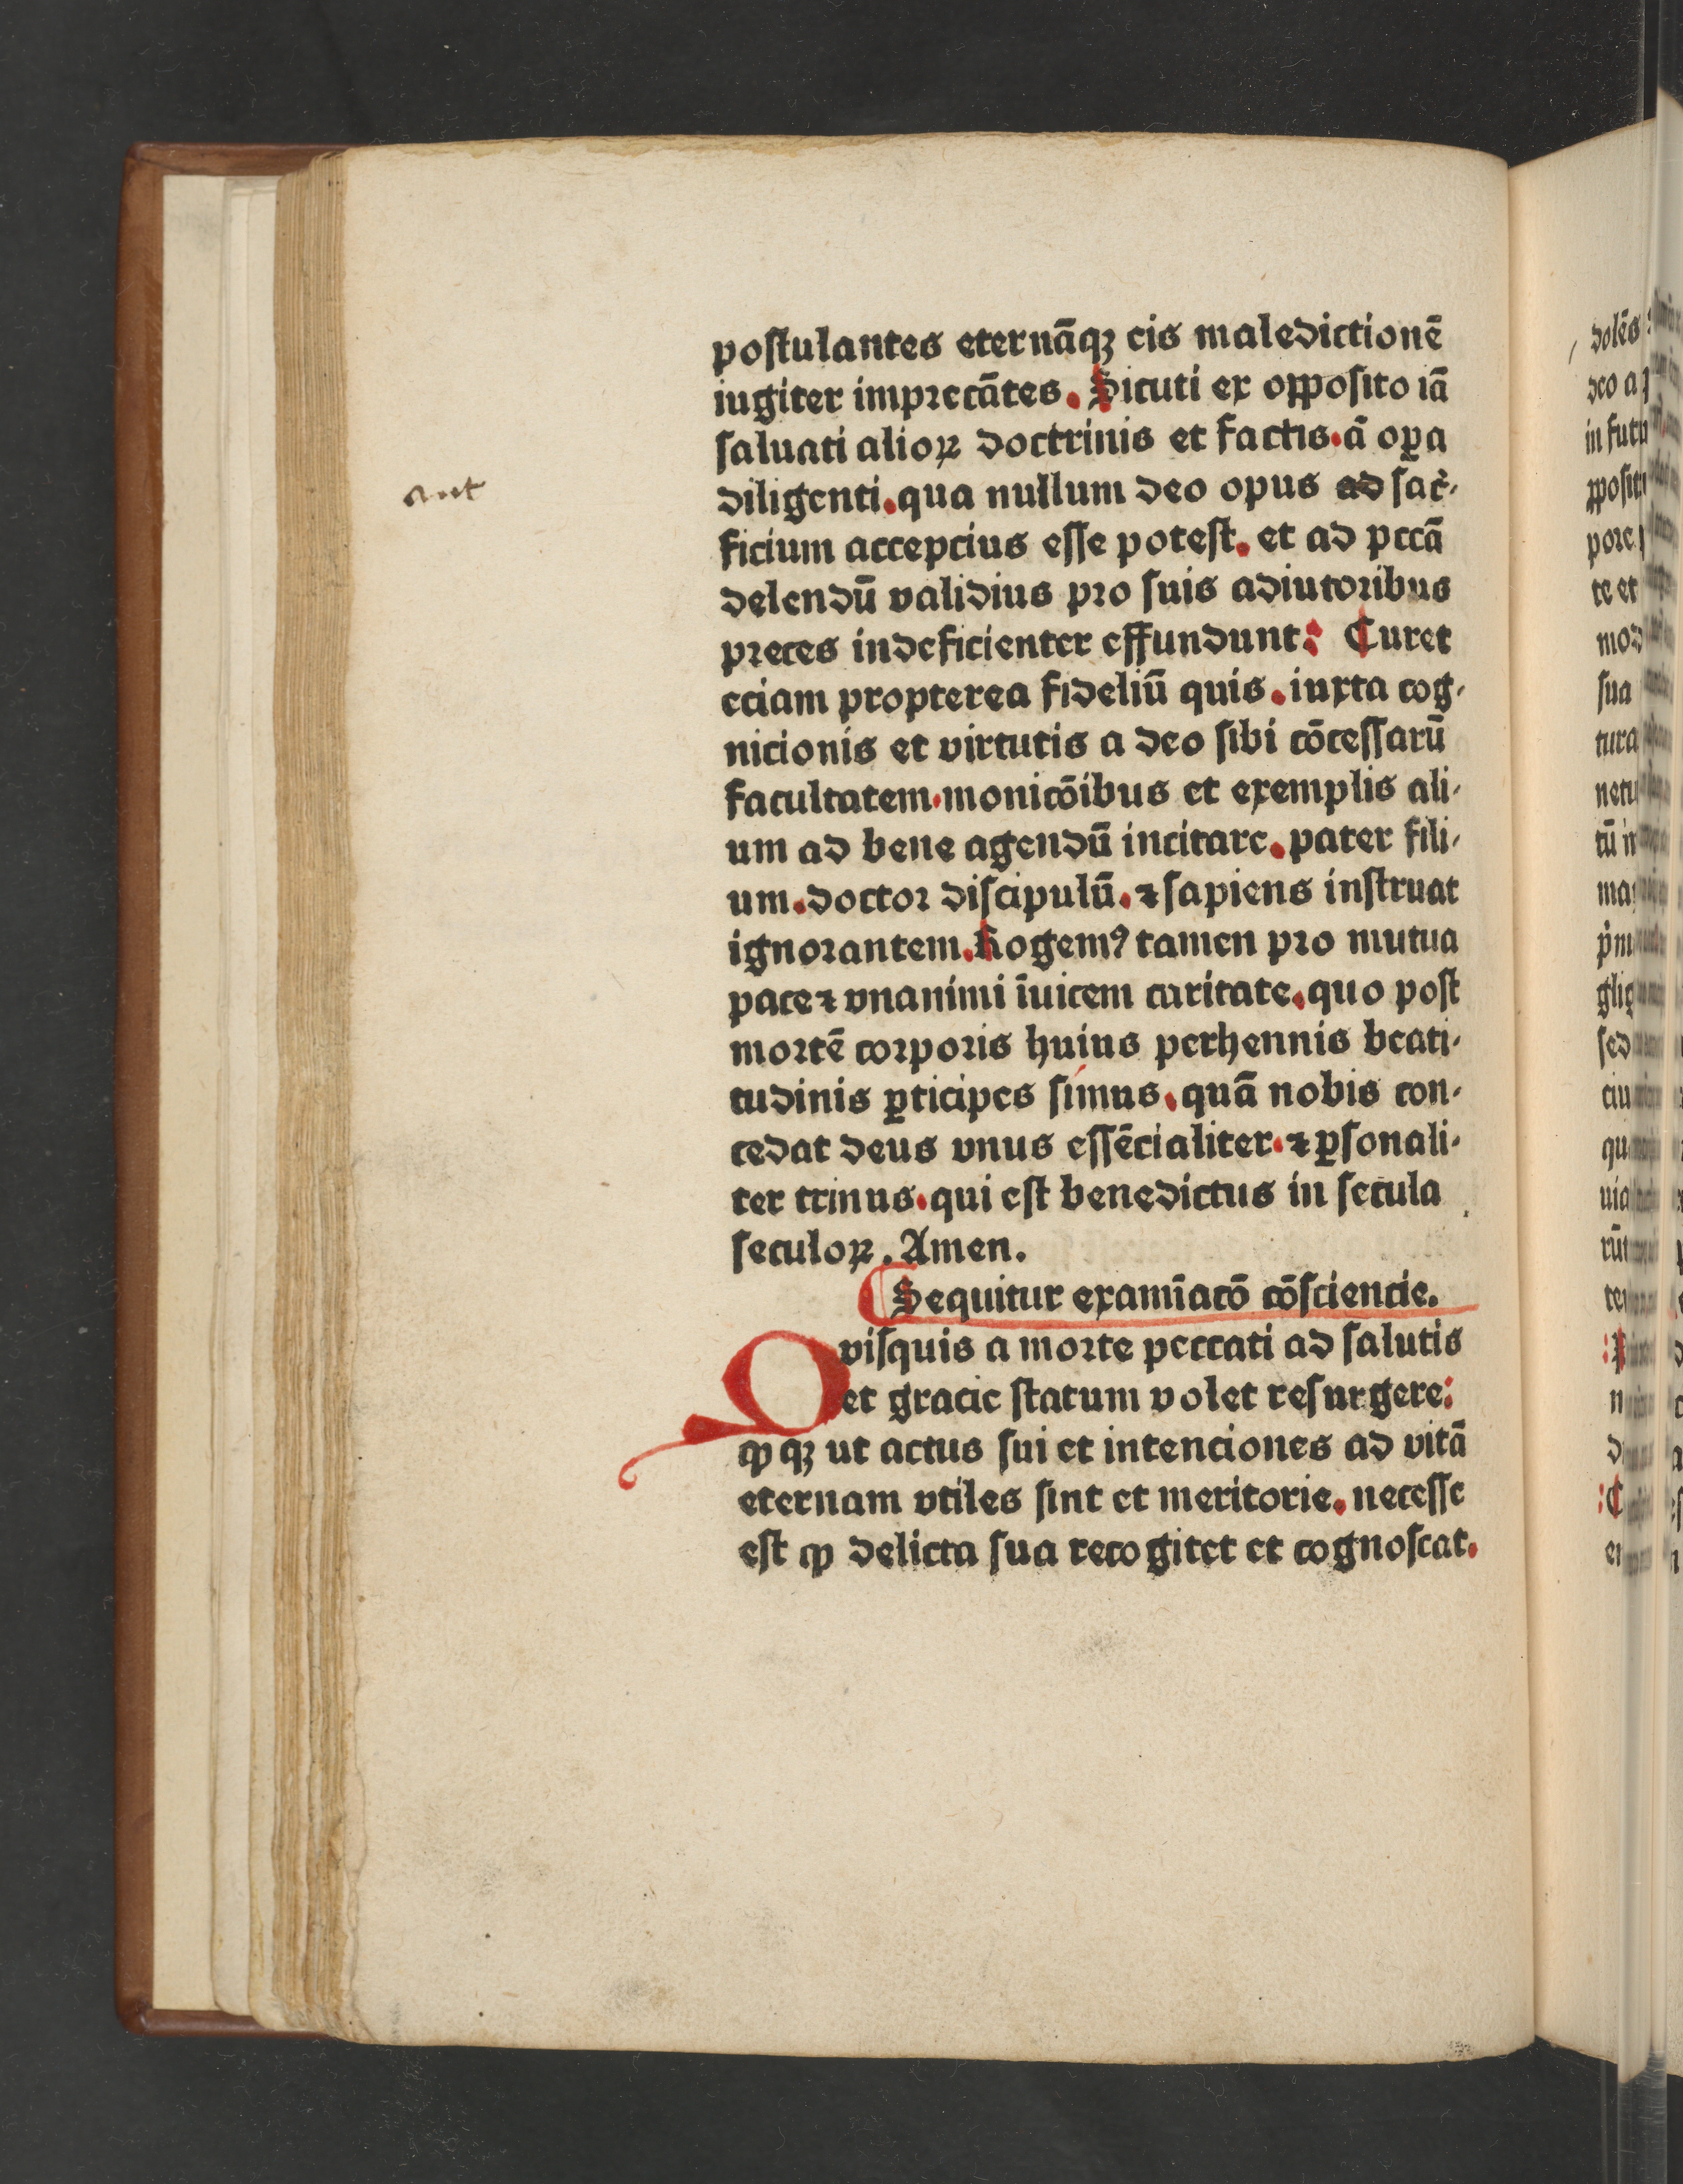 postulantes eternāqꝫ eis maledictionē
iugiter imprecātes. Sicuti ex opposito iā
saluati alioꝝ doctrinis et factis. ā oꝑa
ant
diligenti. qua nullum deo opus ad sac̄-
ficium accepcius esse potest. et ad pccā
delendū validius pro suis adiutoribus
preces indeficienter effundunt: Curet
eciam propterea fideliū quis. iuxta cog-
nicionis et virtutis a deo sibi cōcessarū
facultatem. monicōibus et exemplis ali-
um ad bene agendū incitare. pater fili-
um. doctor discipulū. ⁊ sapiens instruat
ignorantem. Rogemꝰ tamen pro mutua
pace ⁊ vnanimi īuicem caritate. quo post
mortē corporis huius perhennis beati-
tudinis ꝑticipes simus. quā nobis con-
cedat deus vnus essēcialiter. ⁊ ꝑsonali-
ter trinus. qui est benedictus in secula
seculoꝝ. Amen.
Sequitur examīacō cōsciencie.
Qvisquis a morte peccati ad salutis
et gracie statum volet resurgere:
ꝙ qꝫ ut actus sui et intenciones ad vitā
eternam vtiles sint et meritorie. necesse
est ꝙ delicta sua recogitet et cognoscat.
dolēs
deo a
in futu
pore
te et
mod
sua
tura
netu
tū
ma
sed
ciu
qu
uia